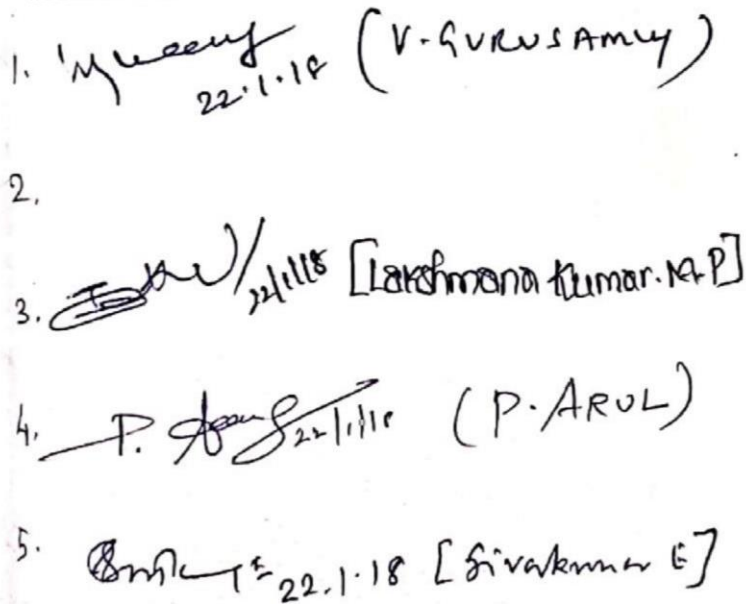 1. 22.1.18 (V. GURUSAMY)
2.
3. 22/1/18 [Lakshmana Kumar. M.P]
4. P. 22/1/18 (P. ARUL)
5. 22.1.18 [Sivakumar E]